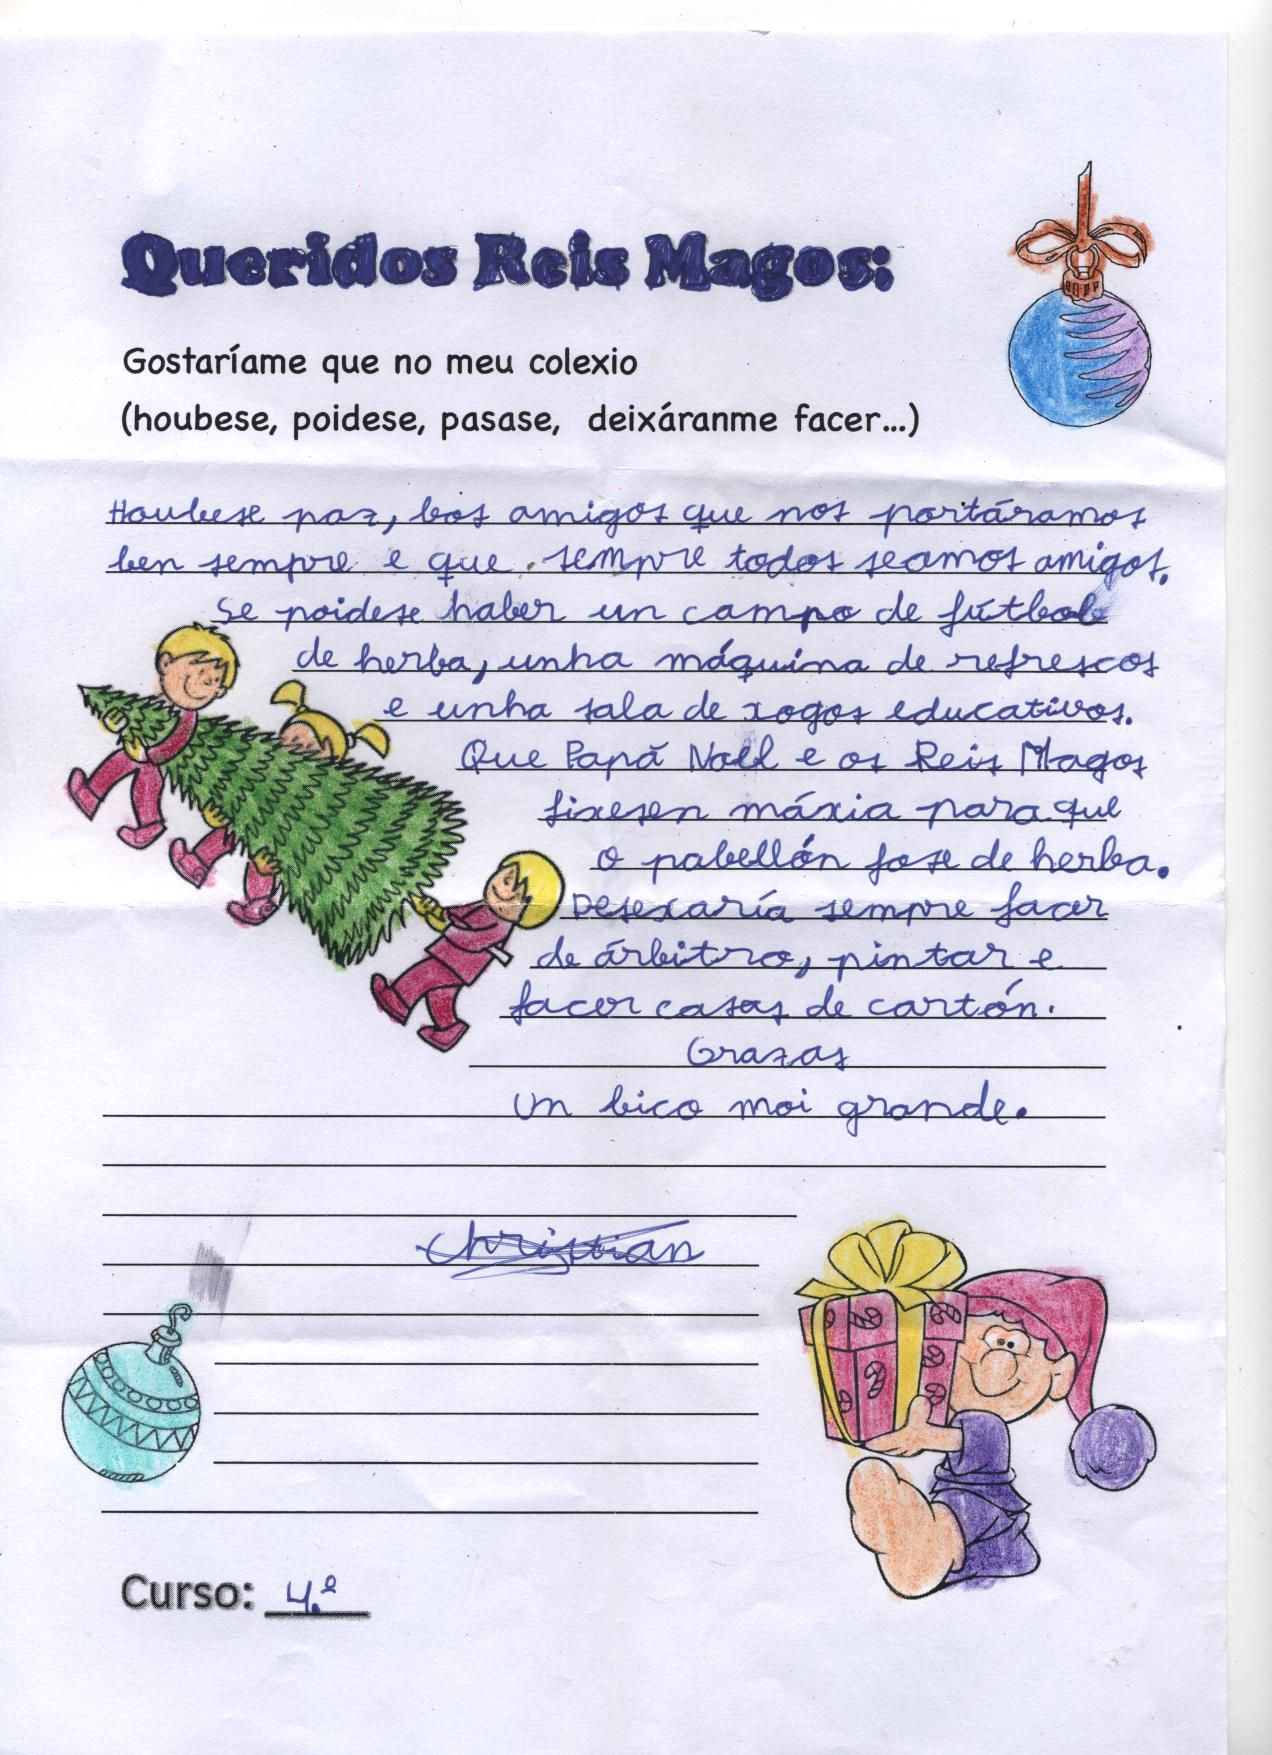 Queridos Reis Magos:
Gostaríame que no meu colexio
(houbese, poidese, pasase, deixáranme facer...)
Houbese paz, bos amigos que nos portáramos
ben sempre e que sempre todos seamos amigos.
Se poidese haber un campo de fútbol
de herba, unha máquina de refrescos
e unha sala de xogos educativos.
Que Papá Noel e os Reis Magos
fixesen máxia para que
o pabellón fose de herba.
Desexaría sempre facer
de árbitro, pintar e
facer casas de cartón.
Grazas
Un bico moi grande.
Christian
Curso: 4.º